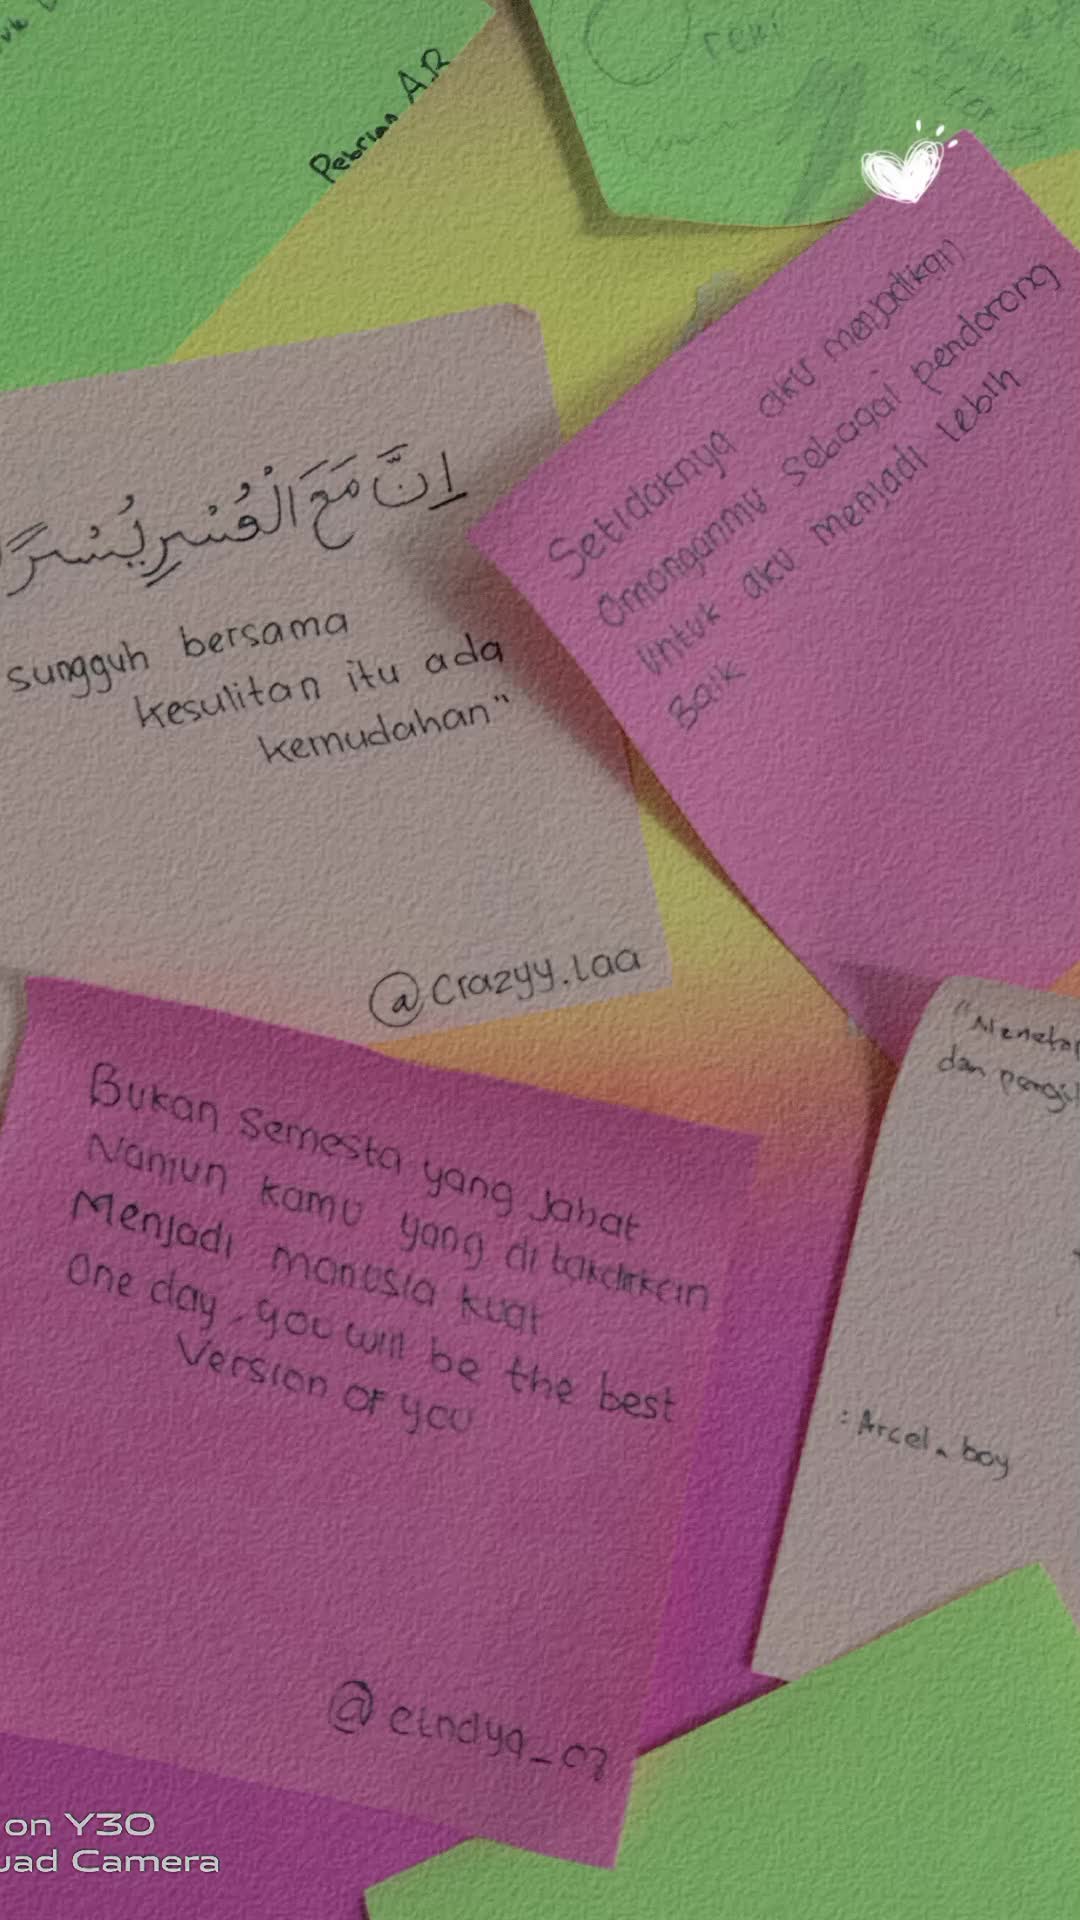 Pebrian A.R
اِنَّ مَعَ الْعُسْرِ يُسْرًا
sungguh bersama
kesulitan itu ada
kemudahan"
@crazyy.laa
Setidaknya aku menjadikan
Omonganmu sebagai pendorong
Untuk aku menjadi lebih
Baik
Bukan semesta yang Jahat
Namun kamu yang di takdirkan
Menjadi manusia kuat
One day, you will be the best
Version OF you
dan
:Arcel_boy
on Y30
Camera